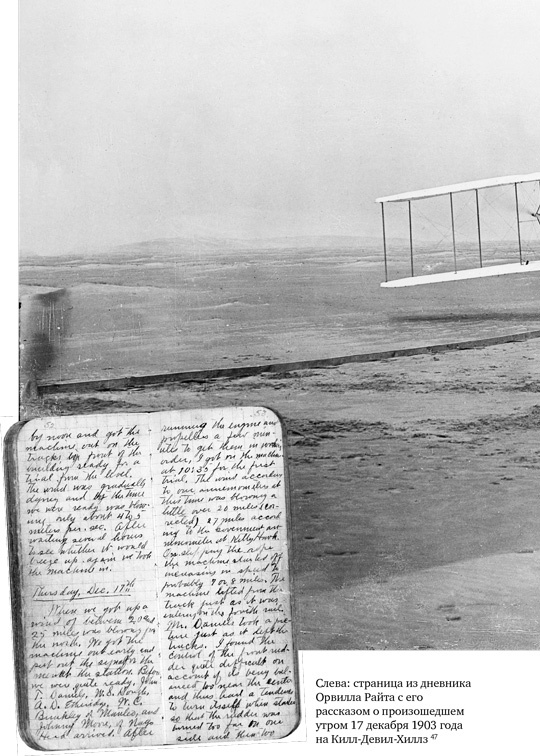 by noon and got the
machine out on the
tracks in front of the
building ready for a
trial from the level.
The wind was gradually
dying and by the time
we were ready was blow-
ing only about 4 to 5
meters per sec. After
waiting several hours
to see whether it would
breeze up again we took
the machine in.
Thursday, Dec. 17th
When we got up a
wind of between 20 and
25 miles was blowing from
the north. We got the
machine out early and
put out the signal for the
men at the station. Before
we were quite ready, John
T. Daniels, W.S. Dough,
A.D. Etheridge, W.C.
Brinkley of Manteo, and
Johnny Moore of Nags
Head arrived. After
running the engine and
propellers a few min-
utes to get them in working
order, I got on the machine
at 10:35 for the first
trial. The wind according
to our anemometer at
this time was blowing a
little over 20 miles (cor-
rected) 27 miles accord
ing to the Government ane
mometer at Kitty Hawk.
On slipping the rope
the machine started off
increasing in speed to
probably 7 or 8 miles. The
machine lifted from the
truck just as it was
entering on the fourth rail.
Mr. Daniels took a pic-
ture just as it left the
tracks. I found the
control of the front rud-
der quite difficult on
account of its being bal-
anced too near the center
and thus had a tendency
to turn itself when started
so that the rudder was
turned too far on one
side and then too
Слева: страница из дневника
Орвилла Райта с его
рассказом о произошедшем
утром 17 декабря 1903 года
на Килл-Девил-Хиллз 47